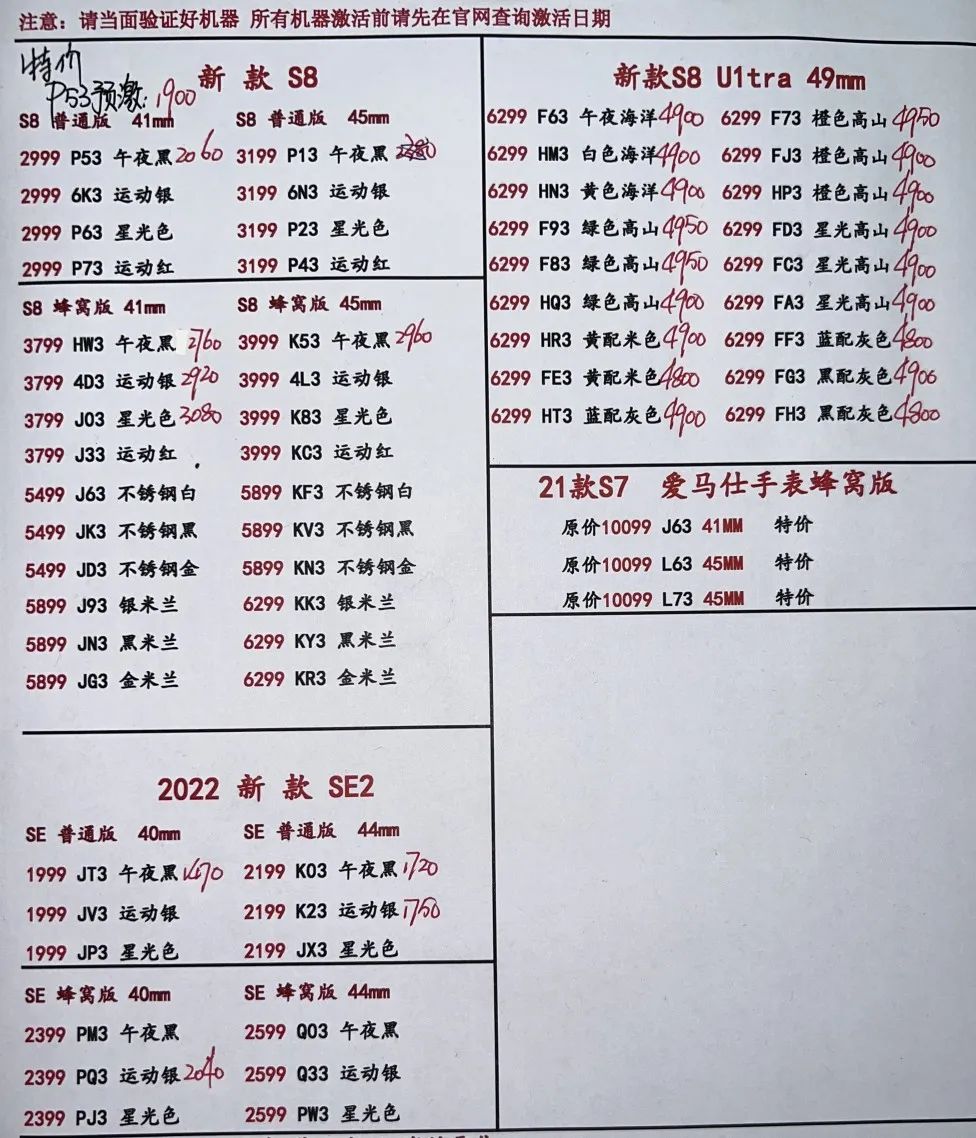 注意：请当面验证好机器 所有机器激活前请先在官网查询激活日期
特价
P53预激：1900
新 款 S8
S8 普通版 41mm
2999 P53 午夜黑 2060
2999 6K3 运动银
2999 P63 星光色
2999 P73 运动红
S8 普通版 45mm
3199 P13 午夜黑
3199 6N3 运动银
3199 P23 星光色
3199 P43 运动红
S8 蜂窝版 41mm
3799 HW3 午夜黑 2760
3799 4D3 运动银 2920
3799 J03 星光色 3080
3799 J33 运动红
5499 J63 不锈钢白
5499 JK3 不锈钢黑
5499 JD3 不锈钢金
5899 J93 银米兰
5899 JN3 黑米兰
5899 JG3 金米兰
S8 蜂窝版 45mm
3999 K53 午夜黑 2960
3999 4L3 运动银
3999 K83 星光色
3999 KC3 运动红
5899 KF3 不锈钢白
5899 KV3 不锈钢黑
5899 KN3 不锈钢金
6299 KK3 银米兰
6299 KY3 黑米兰
6299 KR3 金米兰
2022 新 款 SE2
SE 普通版 40mm
1999 JT3 午夜黑 1470
1999 JV3 运动银
1999 JP3 星光色
SE 普通版 44mm
2199 K03 午夜黑 1720
2199 K23 运动银 1750
2199 JX3 星光色
SE 蜂窝版 40mm
2399 PM3 午夜黑
2399 PQ3 运动银 2040
2399 PJ3 星光色
SE 蜂窝版 44mm
2599 Q03 午夜黑
2599 Q33 运动银
2599 PW3 星光色
新款S8 U1tra 49mm
6299 F63 午夜海洋 4900
6299 HM3 白色海洋 4900
6299 HN3 黄色海洋 4900
6299 F93 绿色高山 4950
6299 F83 绿色高山 4950
6299 HQ3 绿色高山 4900
6299 HR3 黄配米色 4900
6299 FE3 黄配米色 4800
6299 HT3 蓝配灰色 4900
6299 F73 橙色高山 4950
6299 FJ3 橙色高山 4900
6299 HP3 橙色高山 4900
6299 FD3 星光高山 4900
6299 FC3 星光高山 4900
6299 FA3 星光高山 4900
6299 FF3 蓝配灰色 4800
6299 FG3 黑配灰色 4900
6299 FH3 黑配灰色 4800
21款S7 爱马仕手表蜂窝版
原价10099 J63 41MM 特价
原价10099 L63 45MM 特价
原价10099 L73 45MM 特价